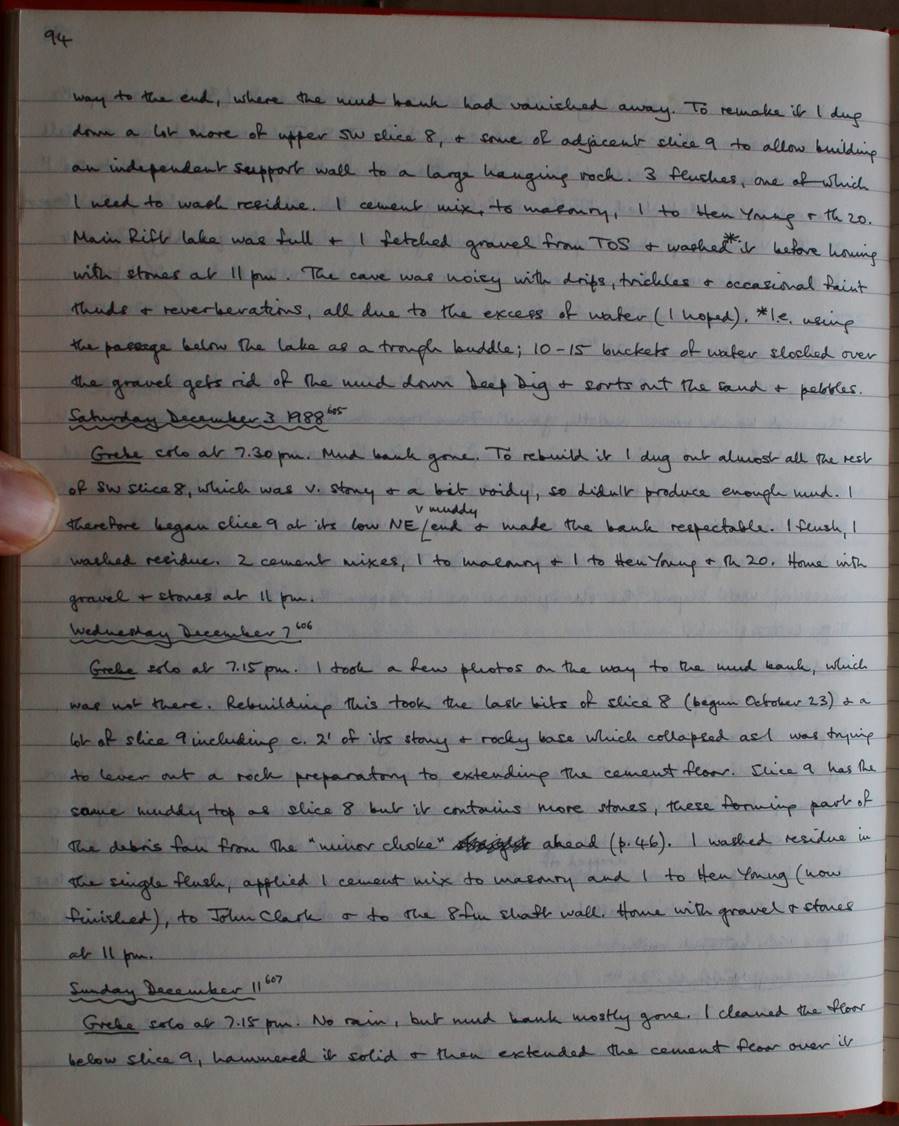 94
way to the end, where the mud bank had vanished away. To remake it I dug
down a lot more of upper SW slice 8, & some of adjacent slice 9 to allow building
an independent support wall to a large hanging rock. 3 flushes, one of which
I used to wash residue. 1 cement mix, to masonry, 1 to Hen Young & th 20.
Main Rift lake was full & I fetched gravel from TOS & washed* it before homing
with stones at 11 pm. The cave was noisy with drips, trickles & occasional faint
thuds & reverberations, all due to the excess of water (I hoped). *I.e. using
the passage below the lake as a trough buddle; 10-15 buckets of water sloshed over
the gravel gets rid of the mud down Deep Dig & sorts out the sand & pebbles.
Saturday December 3 1988 605
Grebe solo at 7.30 pm. Mud bank gone. To rebuild it I dug out almost all the rest
of SW slice 8, which was v. stony & a bit voidy, so didn't produce enough mud. I
therefore began slice 9 at its low NE v muddy end & made the bank respectable. 1 flush, I
washed residue. 2 cement mixes, 1 to masonry & 1 to Hen Young & th 20. Home with
gravel & stones at 11 pm.
Wednesday December 7 606
Grebe solo at 7.15 pm. I took a few photos on the way to the mud bank, which
was not there. Rebuilding this took the last bits of slice 8 (begun October 23) & a
lot of slice 9 including c. 2' of its stony & rocky base which collapsed as I was trying
to lever out a rock preparatory to extending the cement floor. Slice 9 has the
same muddy top as slice 8 but it contains more stones, these forming part of
the debris fan from the "minor choke" ahead (p. 46). I washed residue in
the single flush, applied 1 cement mix to masonry and 1 to Hen Young (now
finished), to John Clark & to the 8-fm shaft wall. Home with gravel & stones
at 11 pm.
Sunday December 11 607
Grebe solo at 7.15 pm. No rain, but mud bank mostly gone. I cleaned the floor
below slice 9, hammered it solid & then extended the cement floor over it